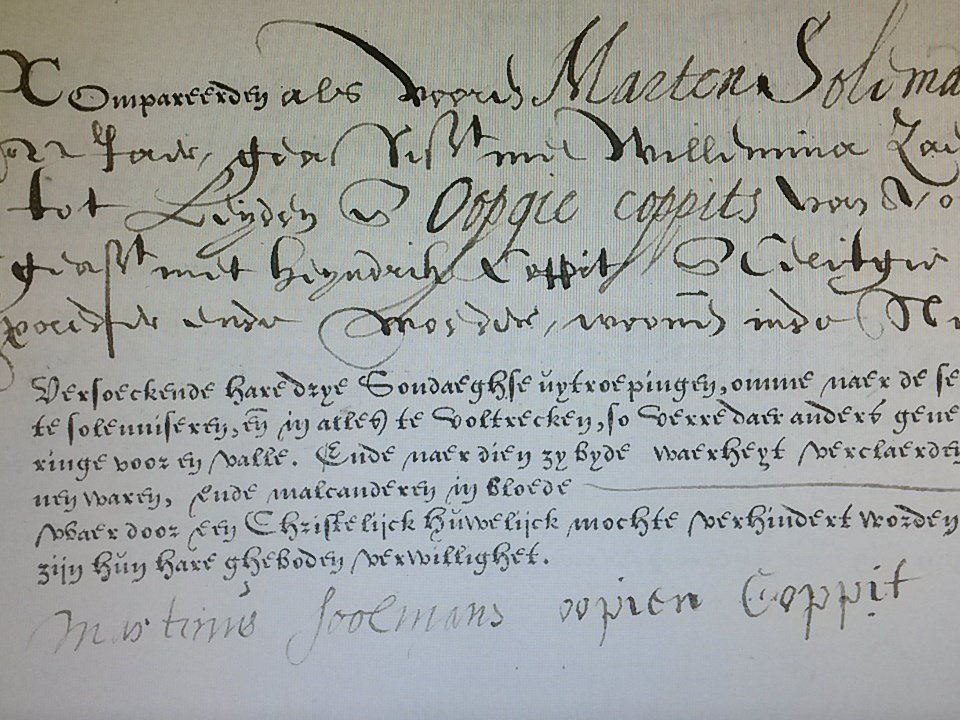 Compareerden als vooren Marten Solema
tot Leyden en Oopgie coppits van
geasst met heyndrick Coppit en
ende moeder, woonen inde
Versoeckende hare drye Sondaeghse uytroepingen, omme naer de se
te solemniseren, en in alles te voltrecken, so verre daer anders gene
ringe voor en valle. Ende naer dien zy byde waerheyt verclaerden
nen waren, ende malcanderen in bloede
waer door een Christelijck Huwelijck mochte verhindert worden
zijn hun hare gheboden verwillighet.
Martinus soolmans oopien Coppit